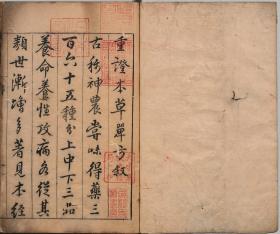 重證本草單方敘
古稱神農嘗味得藥三
百六十五種分上中下三品
養命養性攻病各從其
類世漸增多著見本經